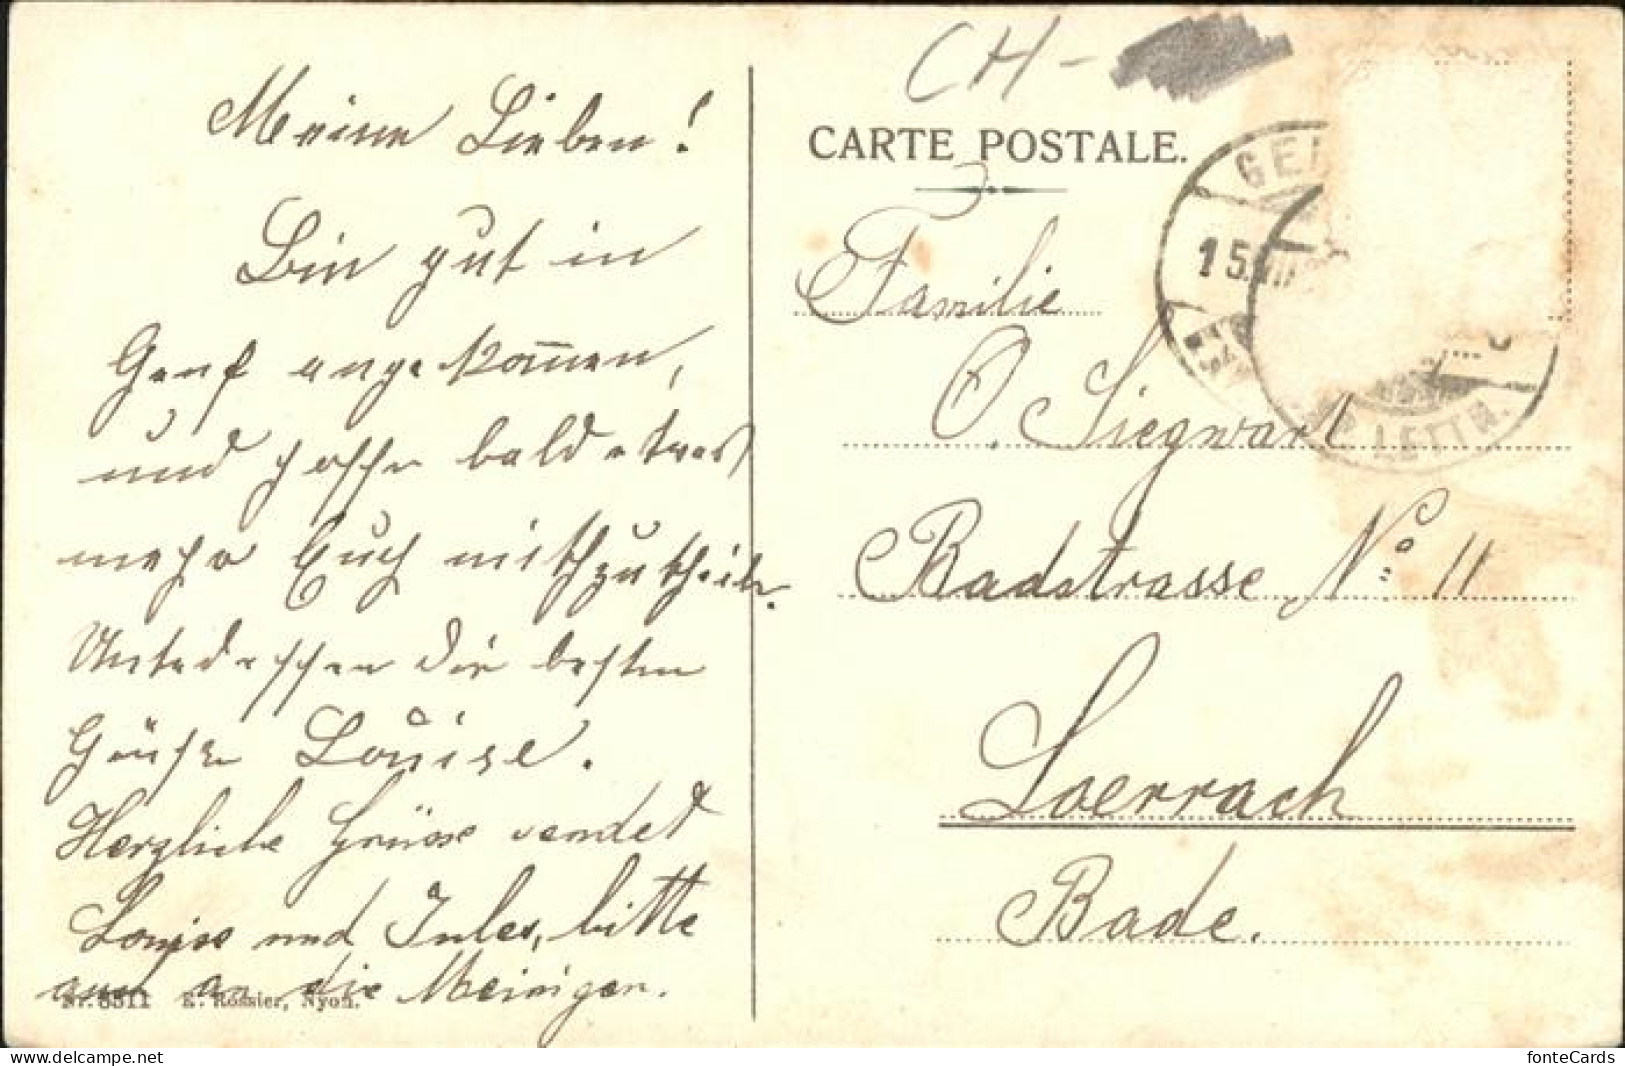 Meine Lieben!
Bin gut in
Genf angekommen,
und hoffe bald etwas
mehr Euch mitzutheilen.
Unterdessen die besten
Grüsse Louise.
Herzliche Grüsse sendet
Louise und Jules, bitte
auch an die Meinigen.
Nr. 8511 E. Rossier, Nyon.
CH-
CARTE POSTALE.
3
GE
15.VII
Familie
O. Siegwart
Badstrasse No 11
Loerrach
Bade.
LETTR.
fonteCards